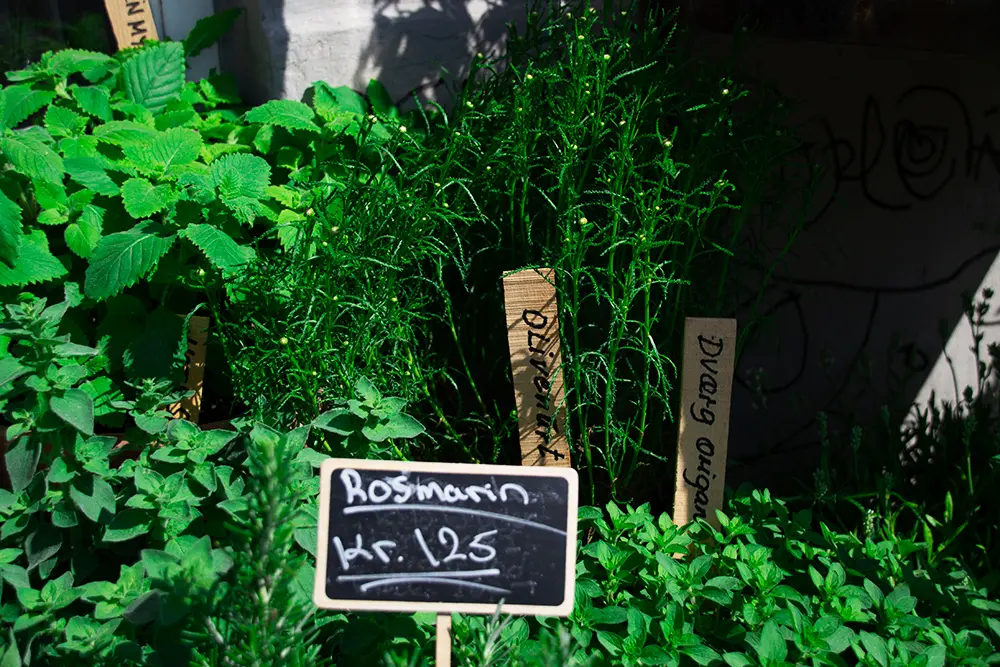 Olivenurt
Dværg ourigan
Rosmarin
Kr. 125